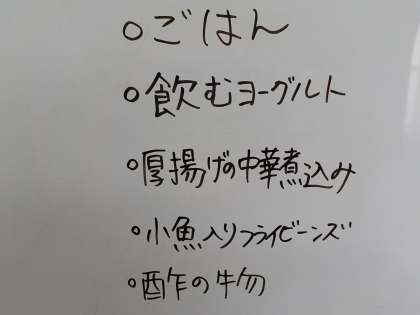 ○ごはん
○飲むヨーグルト
○厚揚げの中華煮込み
○小魚入りフライビーンズ
○酢の物